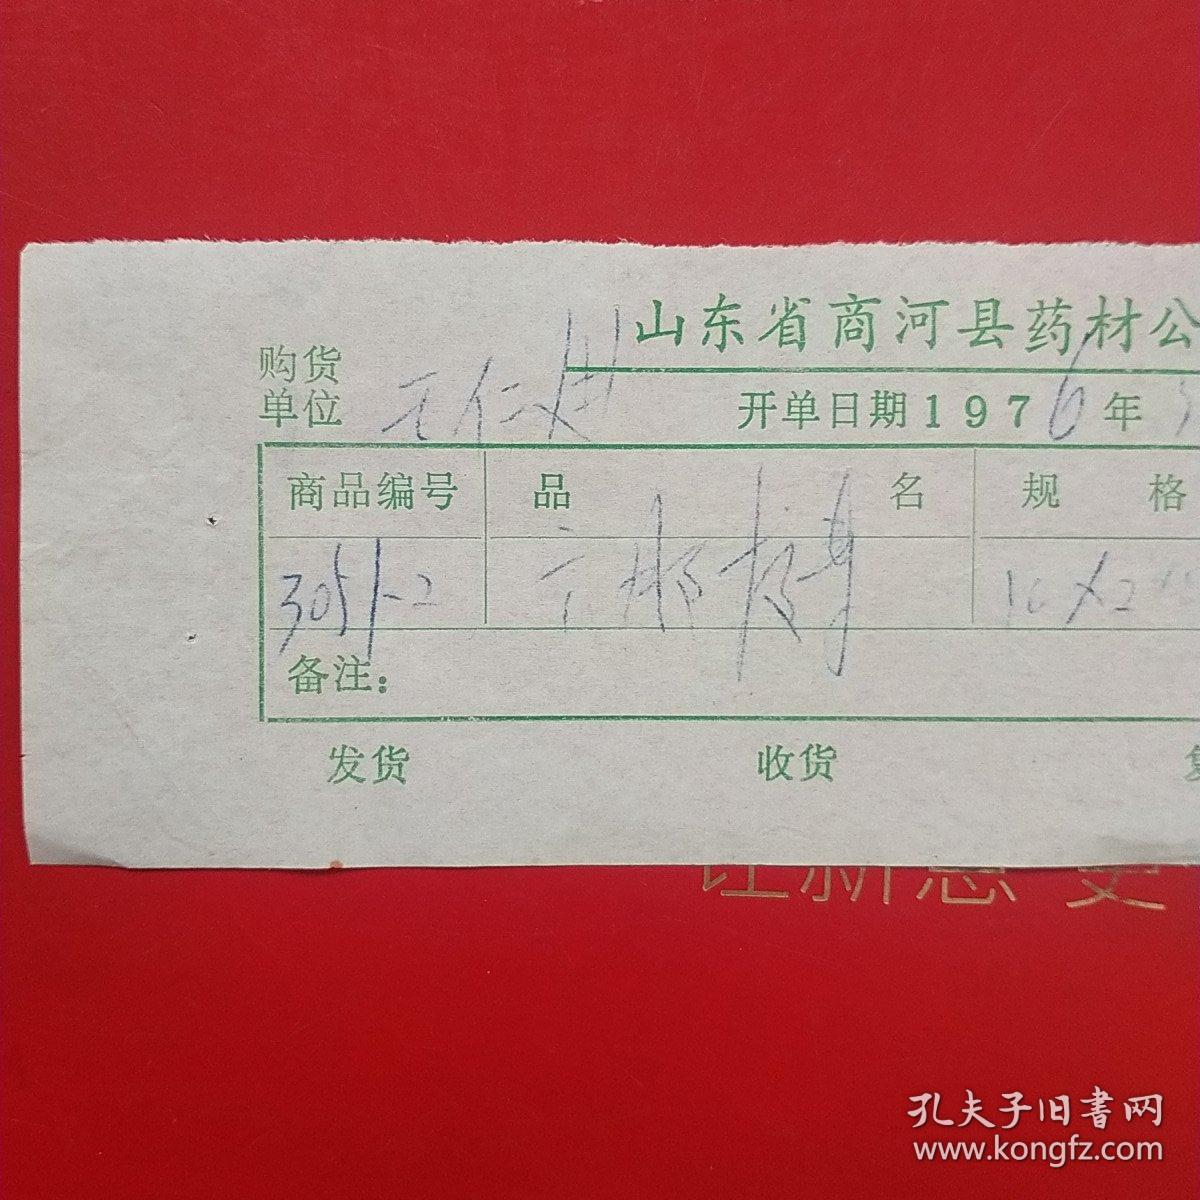 山东省商河县药材公
购货
单位
开单日期1976年
商品编号 品 名 规 格
3051-2 10X2
备注：
发货 收货
孔夫子旧书网
www.kongfz.com